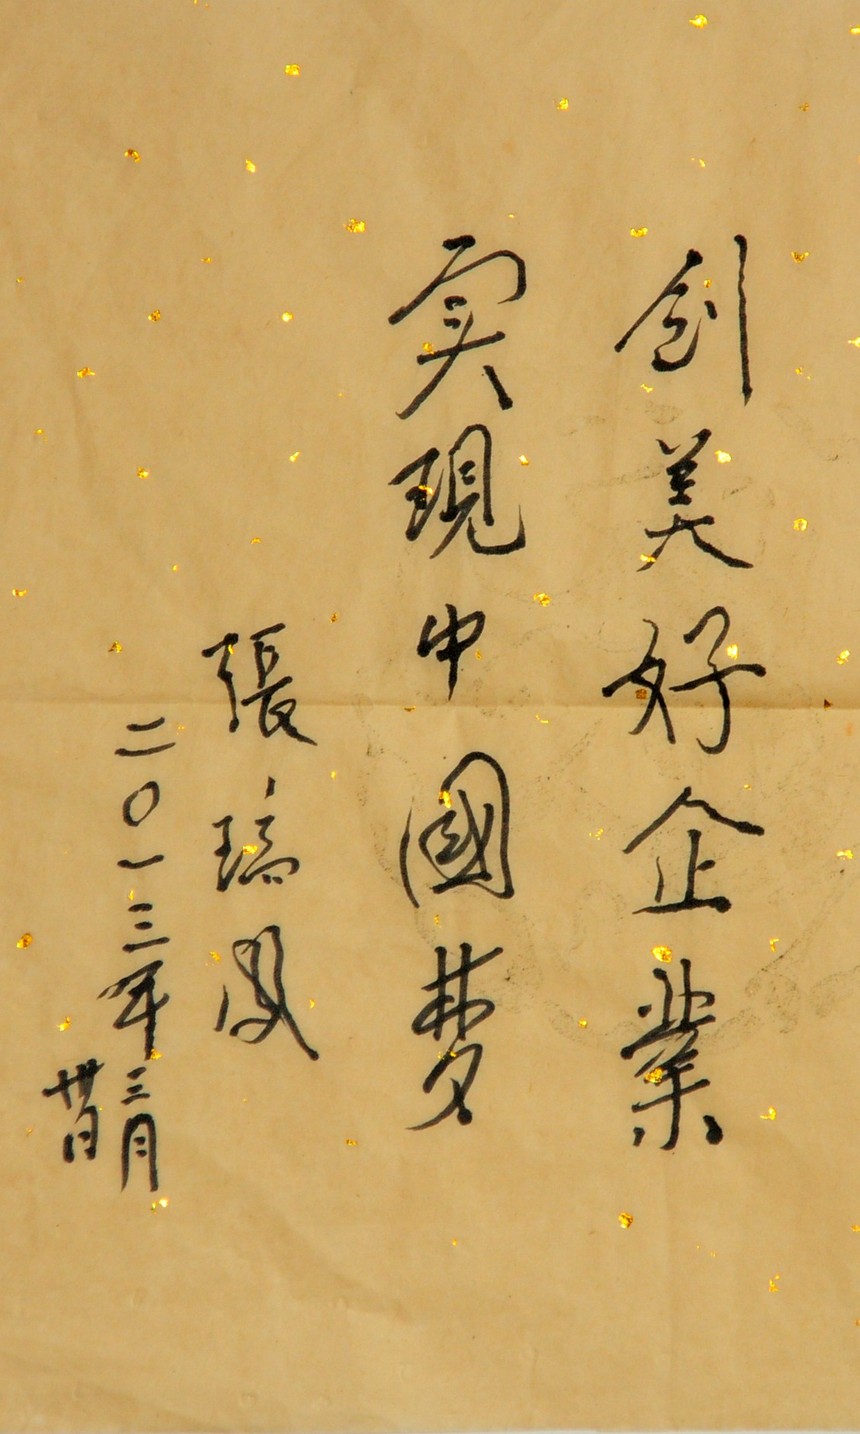 创美好企業
实現中國梦
張瑞凤
二〇一三年三月
日